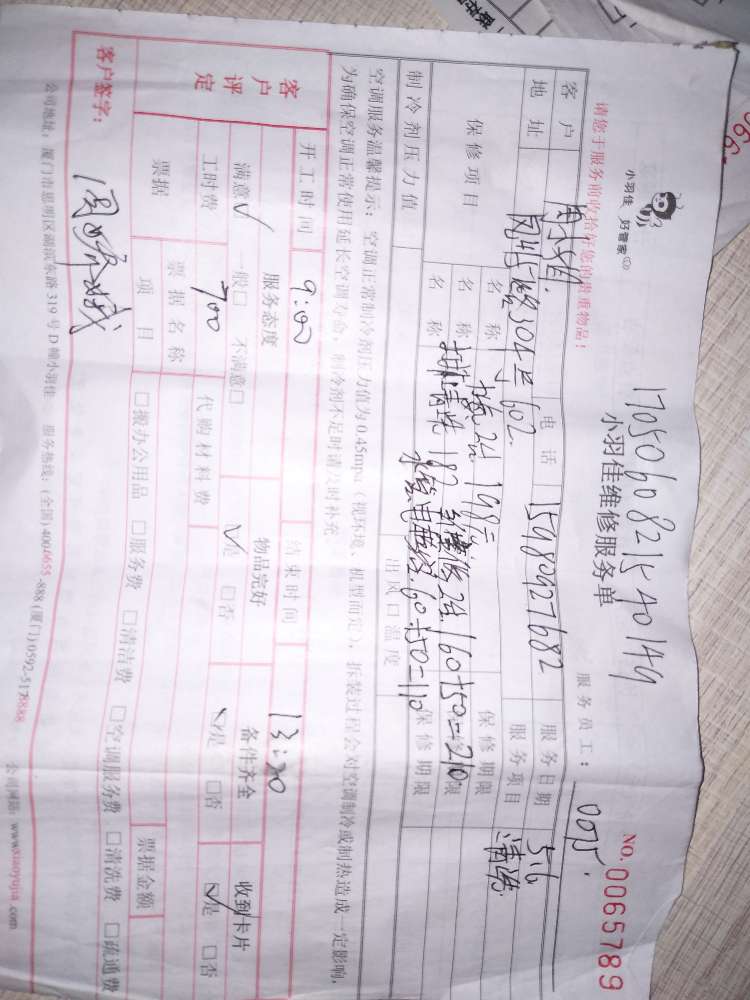 1705060821540149
小羽佳 好管家
小羽佳维修服务单
NO. 0065789
请您于服务前收拾好您的贵重物品!
服务员工: 005
客户
电话 15980927682
服务日期 5.6
地址 304 602
服务项目 清洗
保修项目
名称 198元
保修期限
名称 清洗 182 160+50=210
保修期限
名称 60+50=110
保修期限
制冷剂压力值
出风口温度
空调服务温馨提示:空调正常制冷剂压力值为0.45mpa(视环境、机型而定),拆装过程会对空调制冷或制热造成一定影响,
为确保空调正常使用延长空调寿命,制冷剂不足时请及时补充
客户评定
开工时间 9:00
结束时间 13:20
服务态度
物品完好
备件齐全
收到卡片
满意√ 一般□ 不满意□
√是 □否
√是 □否
√是 □否
工时费 700
代购材料费
票据
票据名称
票据金额
项目
□搬办公用品 □服务费 □清洁费 □空调服务费 □清洗费 □疏通费
客户签字:
公司地址:厦门市思明区湖滨东路319号D幢小羽佳 服务热线:(全国)4004655-888(厦门)0592-5178888 公司网络:www.xiaoyujia.com